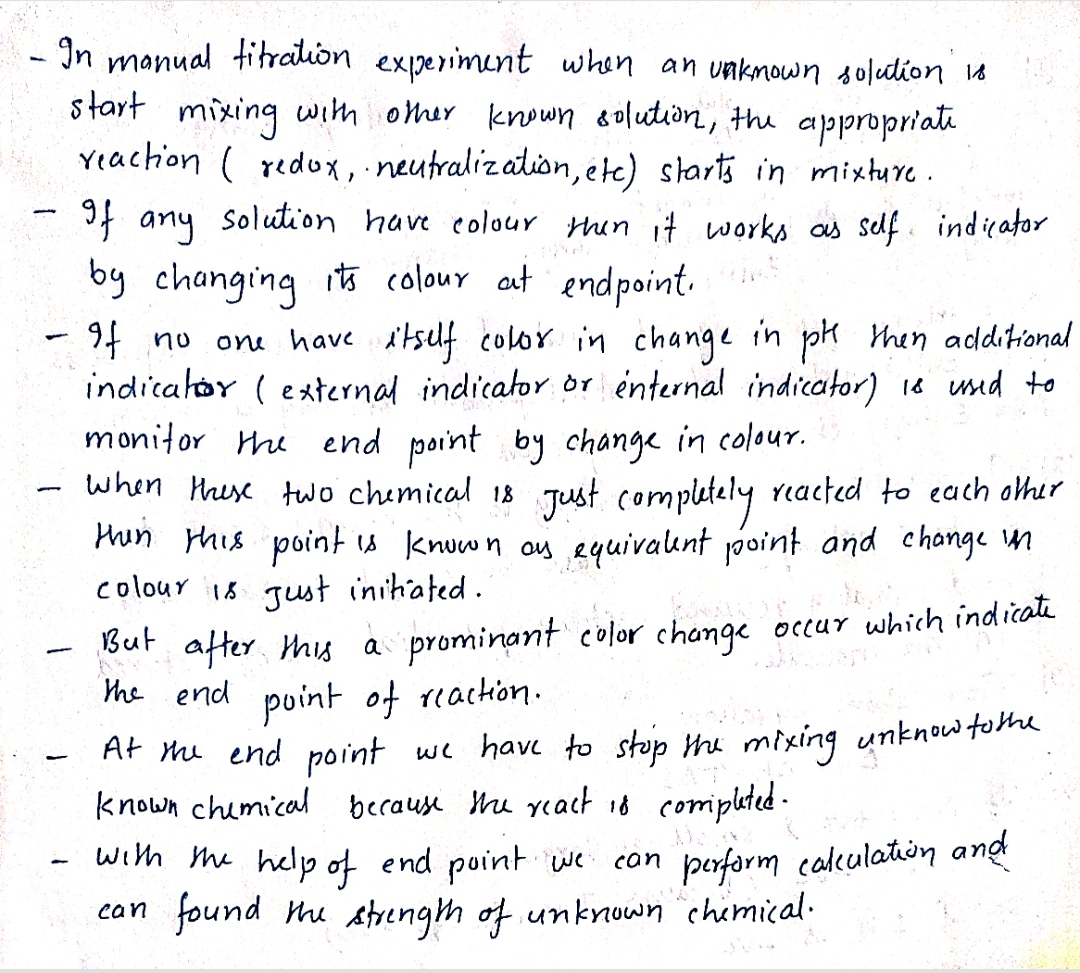 - In manual titration experiment when an unknown solution is
start mixing with other known solution, the appropriate
reaction ( redox, neutralization, etc) starts in mixture.
- If any solution have colour then it works as self indicator
by changing its colour at endpoint.
- If no one have itself color in change in pH then additional
indicator ( external indicator or internal indicator) is used to
monitor the end point by change in colour.
- When these two chemical is just completely reacted to each other
then this point is known as equivalent point and change in
colour is just initiated.
- But after this a prominant color change occur which indicate
the end point of reaction.
- At the end point we have to stop the mixing unknow to the
known chemical because the react is completed.
- with the help of end point we can perform calculation and
can found the strength of unknown chemical.